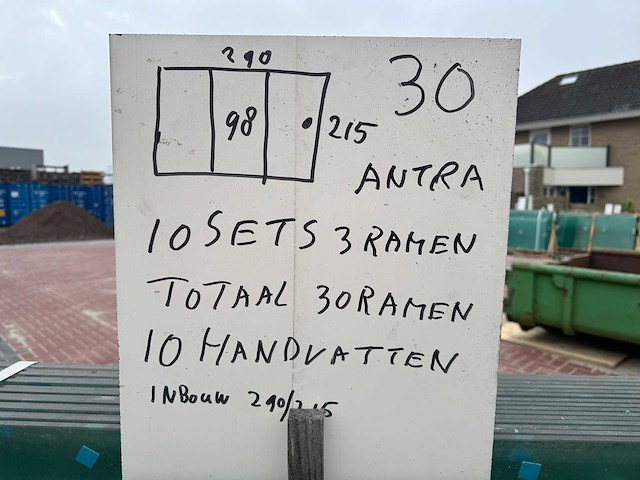 290
30
98
215
ANTRA
10 SETS 3 RAMEN
TOTAAL 30 RAMEN
10 HANDVATTEN
INBOUW 290/215